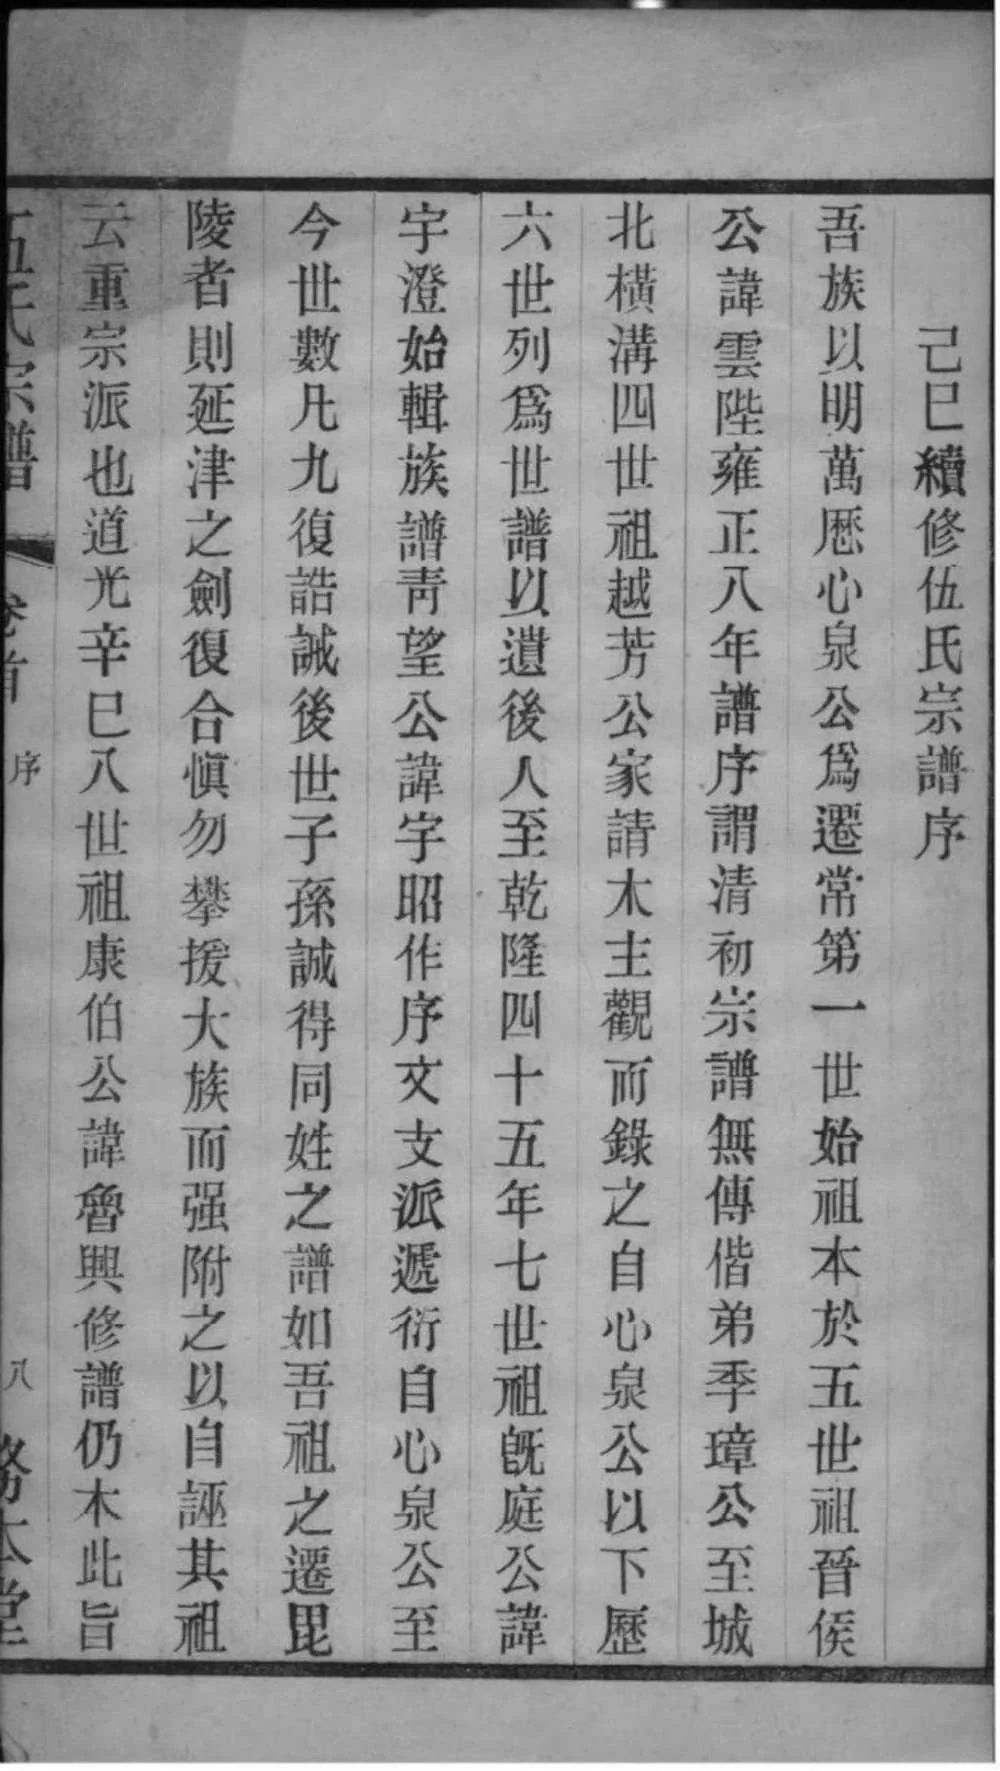 己巳續修伍氏宗譜序
吾族以明萬厯心泉公爲遷常第一世始祖本於五世祖晉侯
公諱雲陛雍正八年譜序謂清初宗譜無傳偕弟季璋公至城
北橫溝四世祖越芳公家請木主觀而錄之自心泉公以下歷
六世列爲世譜以遺後人至乾隆四十五年七世祖旣庭公諱
宇澄始輯族譜靑望公諱宇昭作序文支派遞衍自心泉公至
今世數凡九復誥誡後世子孫誠得同姓之譜如吾祖之遷毘
陵者則延津之劍復合愼勿攀援大族而强附之以自誣其祖
云重宗派也道光辛巳八世祖康伯公諱魯興修譜仍本此旨
伍氏宗譜 卷首 序 八 務本堂